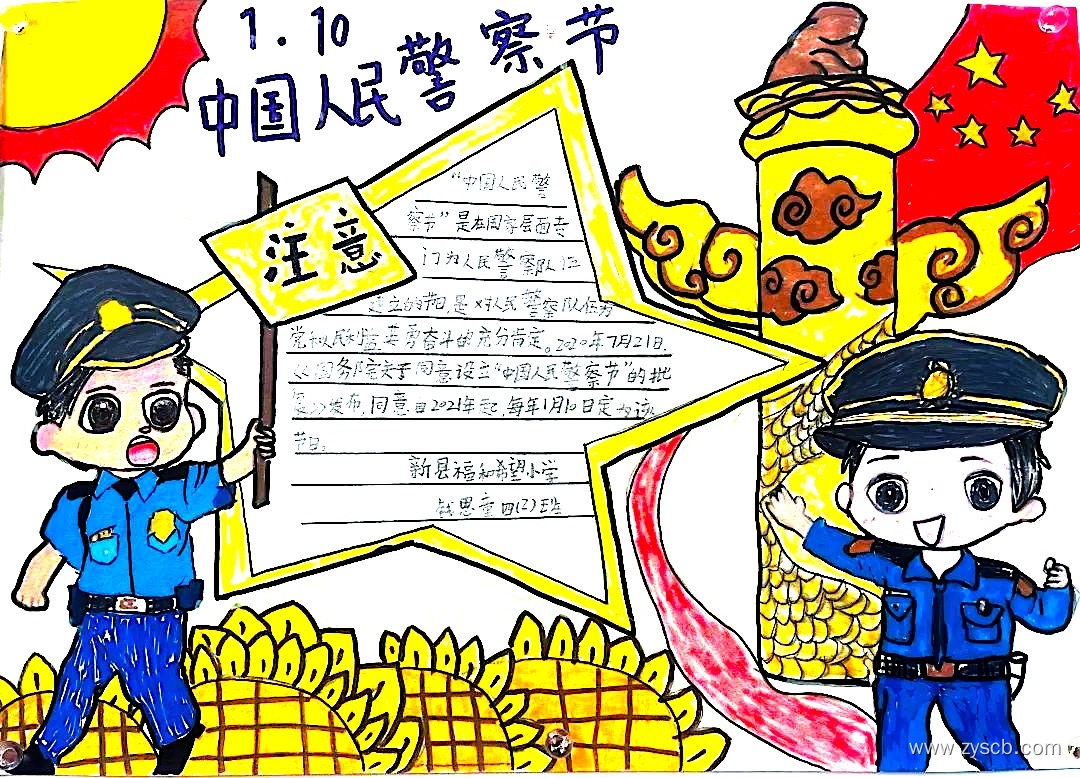 1.10
中国人民警察节
注意
"中国人民警
察节"是在国家层面专
门为人民警察队伍
建立的节日,是对人民警察队伍为
党和人民利益英勇奋斗的充分肯定。2020年7月21日,
《国务院关于同意设立"中国人民警察节"的批
复》发布,同意自2021年起,每年1月10日定为该
节日。
新县福和希望小学
钱思童四(2)班
www.zyscb.com